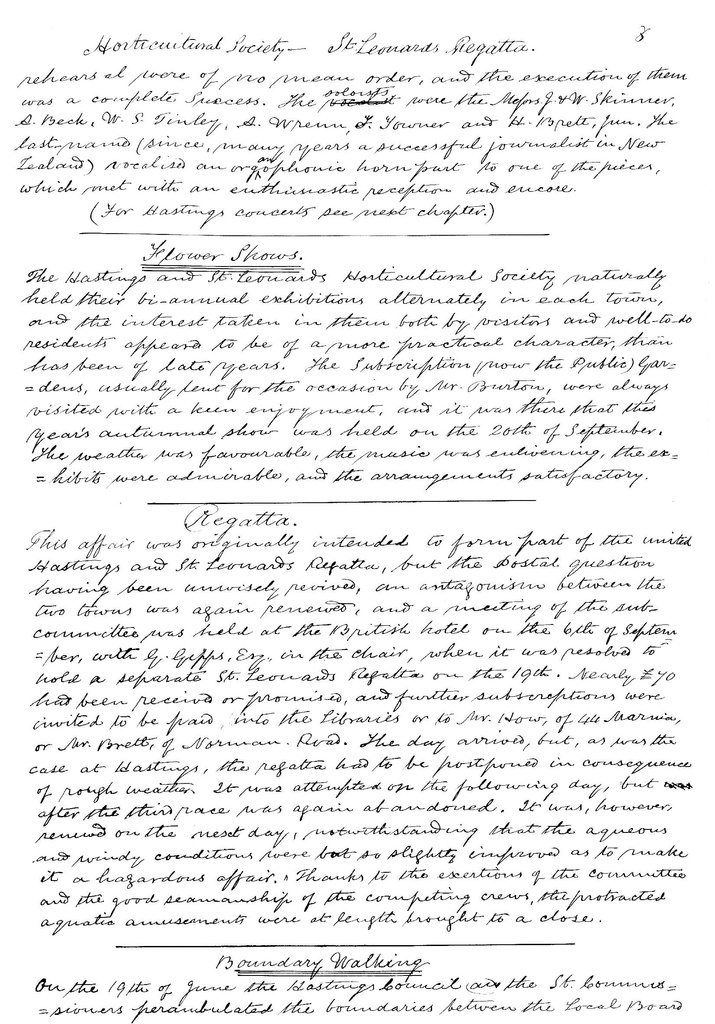 Horticultural Society — St Leonards Regatta. 8
rehearsal were of no mean order, and the execution of them
was a complete Success. The soloists vocalist were the Messrs J. & W. Skinner,
A. Beck, W. S. Tinley, A. Wrenn, F. Towner and H. Brett, Jun. The
last-named (since, many years a successful journalist in New
Zealand) vocalised an organophonic horn part to one of the pieces,
which met with an enthusiastic reception and encore.
(For Hastings concerts see next chapter.)
Flower Shows.
The Hastings and St. Leonards Horticultural Society naturally
held their bi-annual exhibitions alternately in each town,
and the interest taken in them both by visitors and well-to-do
residents appeared to be of a more practical character, than
has been of late years. The Subscription (now the Public) Gar=
=dens, usually lent for the occasion by Mr. Burton, were always
visited with a keen enjoyment, and it was there that this
year's autumnal show was held on the 20th of September.
The weather was favourable, the music was enlivening, the ex=
=hibits were admirable, and the arrangements satisfactory.
Regatta.
This affair was originally intended to form part of the united
Hastings and St. Leonards Regatta, but the Postal question
having been unwisely revived, an antagonism between the
two towns was again renewed, and a meeting of the sub-
committee was held at the British hotel on the 6th of Septem
=ber, with G. Gipps, Esq. in the chair, when it was resolved to
hold a separate St. Leonards Regatta on the 19th. Nearly £70
had been received or promised, and further subscriptions were
invited to be paid into the Libraries or to Mr. How, of 44 Marina,
or Mr. Brett, of Norman Road. The day arrived, but, as was the
case at Hastings, the regatta had to be postponed in consequence
of rough weather. It was attempted on the following day, but was
after the third race was again abandoned. It was, however,
renewed on the next day, notwithstanding that the aqueous
and windy conditions were but so slightly improved as to make
it a hazardous affair. Thanks to the exertions of the committee
and the good seamanship of the competing crews, the protracted
aquatic amusements were at length brought to a close.
Boundary Walking
On the 19th of June the Hastings Council and the St. Commis=
=sioners perambulated the boundaries between the Local Board